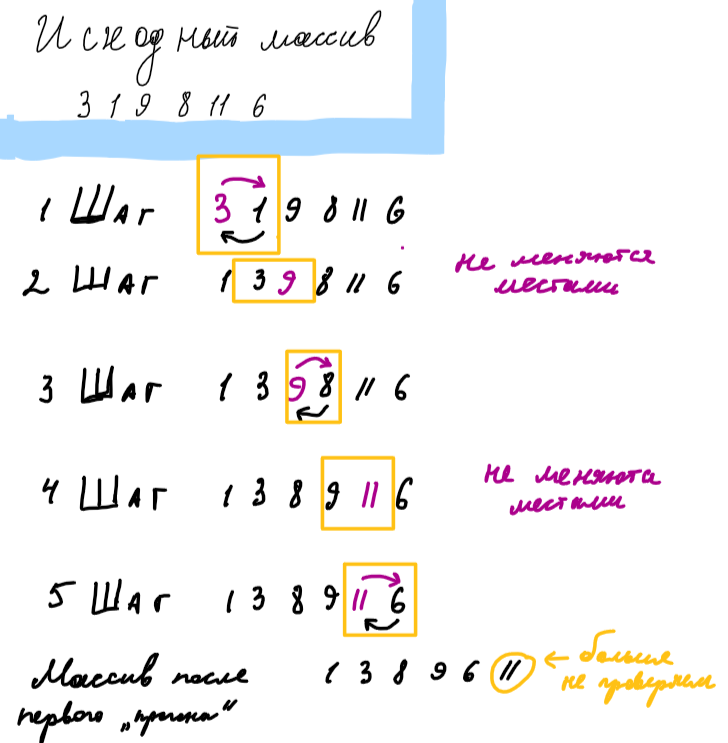 Исходный массив
3 1 9 8 11 6
1 Шаг 3 1 9 8 11 6
2 Шаг 1 3 9 8 11 6
не меняются
местами
3 Шаг 1 3 9 8 11 6
4 Шаг 1 3 8 9 11 6
не меняюта
местами
5 Шаг 1 3 8 9 11 6
Массив после
первого „прогона“
1 3 8 9 6 11
← больше
не проверяем